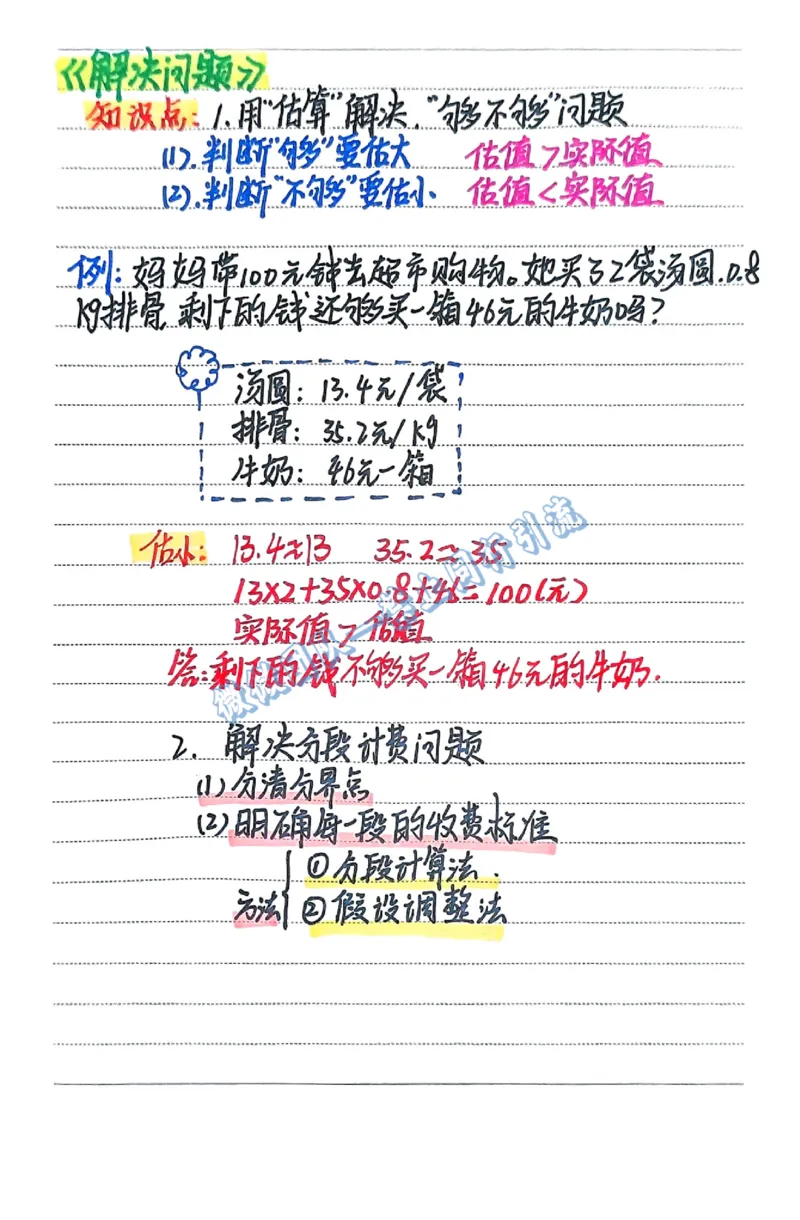 《解决问题》
知识点：1.用“估算”解决.“够多不够多”问题
(1).判断“够”要估大 估值>实际值
(2).判断“不够”要估小. 估值<实际值
例：妈妈带100元钱去超市购物。她买了2袋汤圆.0.8
kg排骨,剩下的钱还够买一箱46元的牛奶吗?
汤圆：13.4元/袋
排骨：35.2元/kg
牛奶：46元一箱
估小：13.4≈13 35.2≈35
13×2+35×0.8+46=100(元)
实际值>估值
答:剩下的钱不够买一箱46元的牛奶.
2. 解决分段计费问题
(1)分清分界点
(2)明确每一段的收费标准
方法 ①分段计算法.
②假设调整法